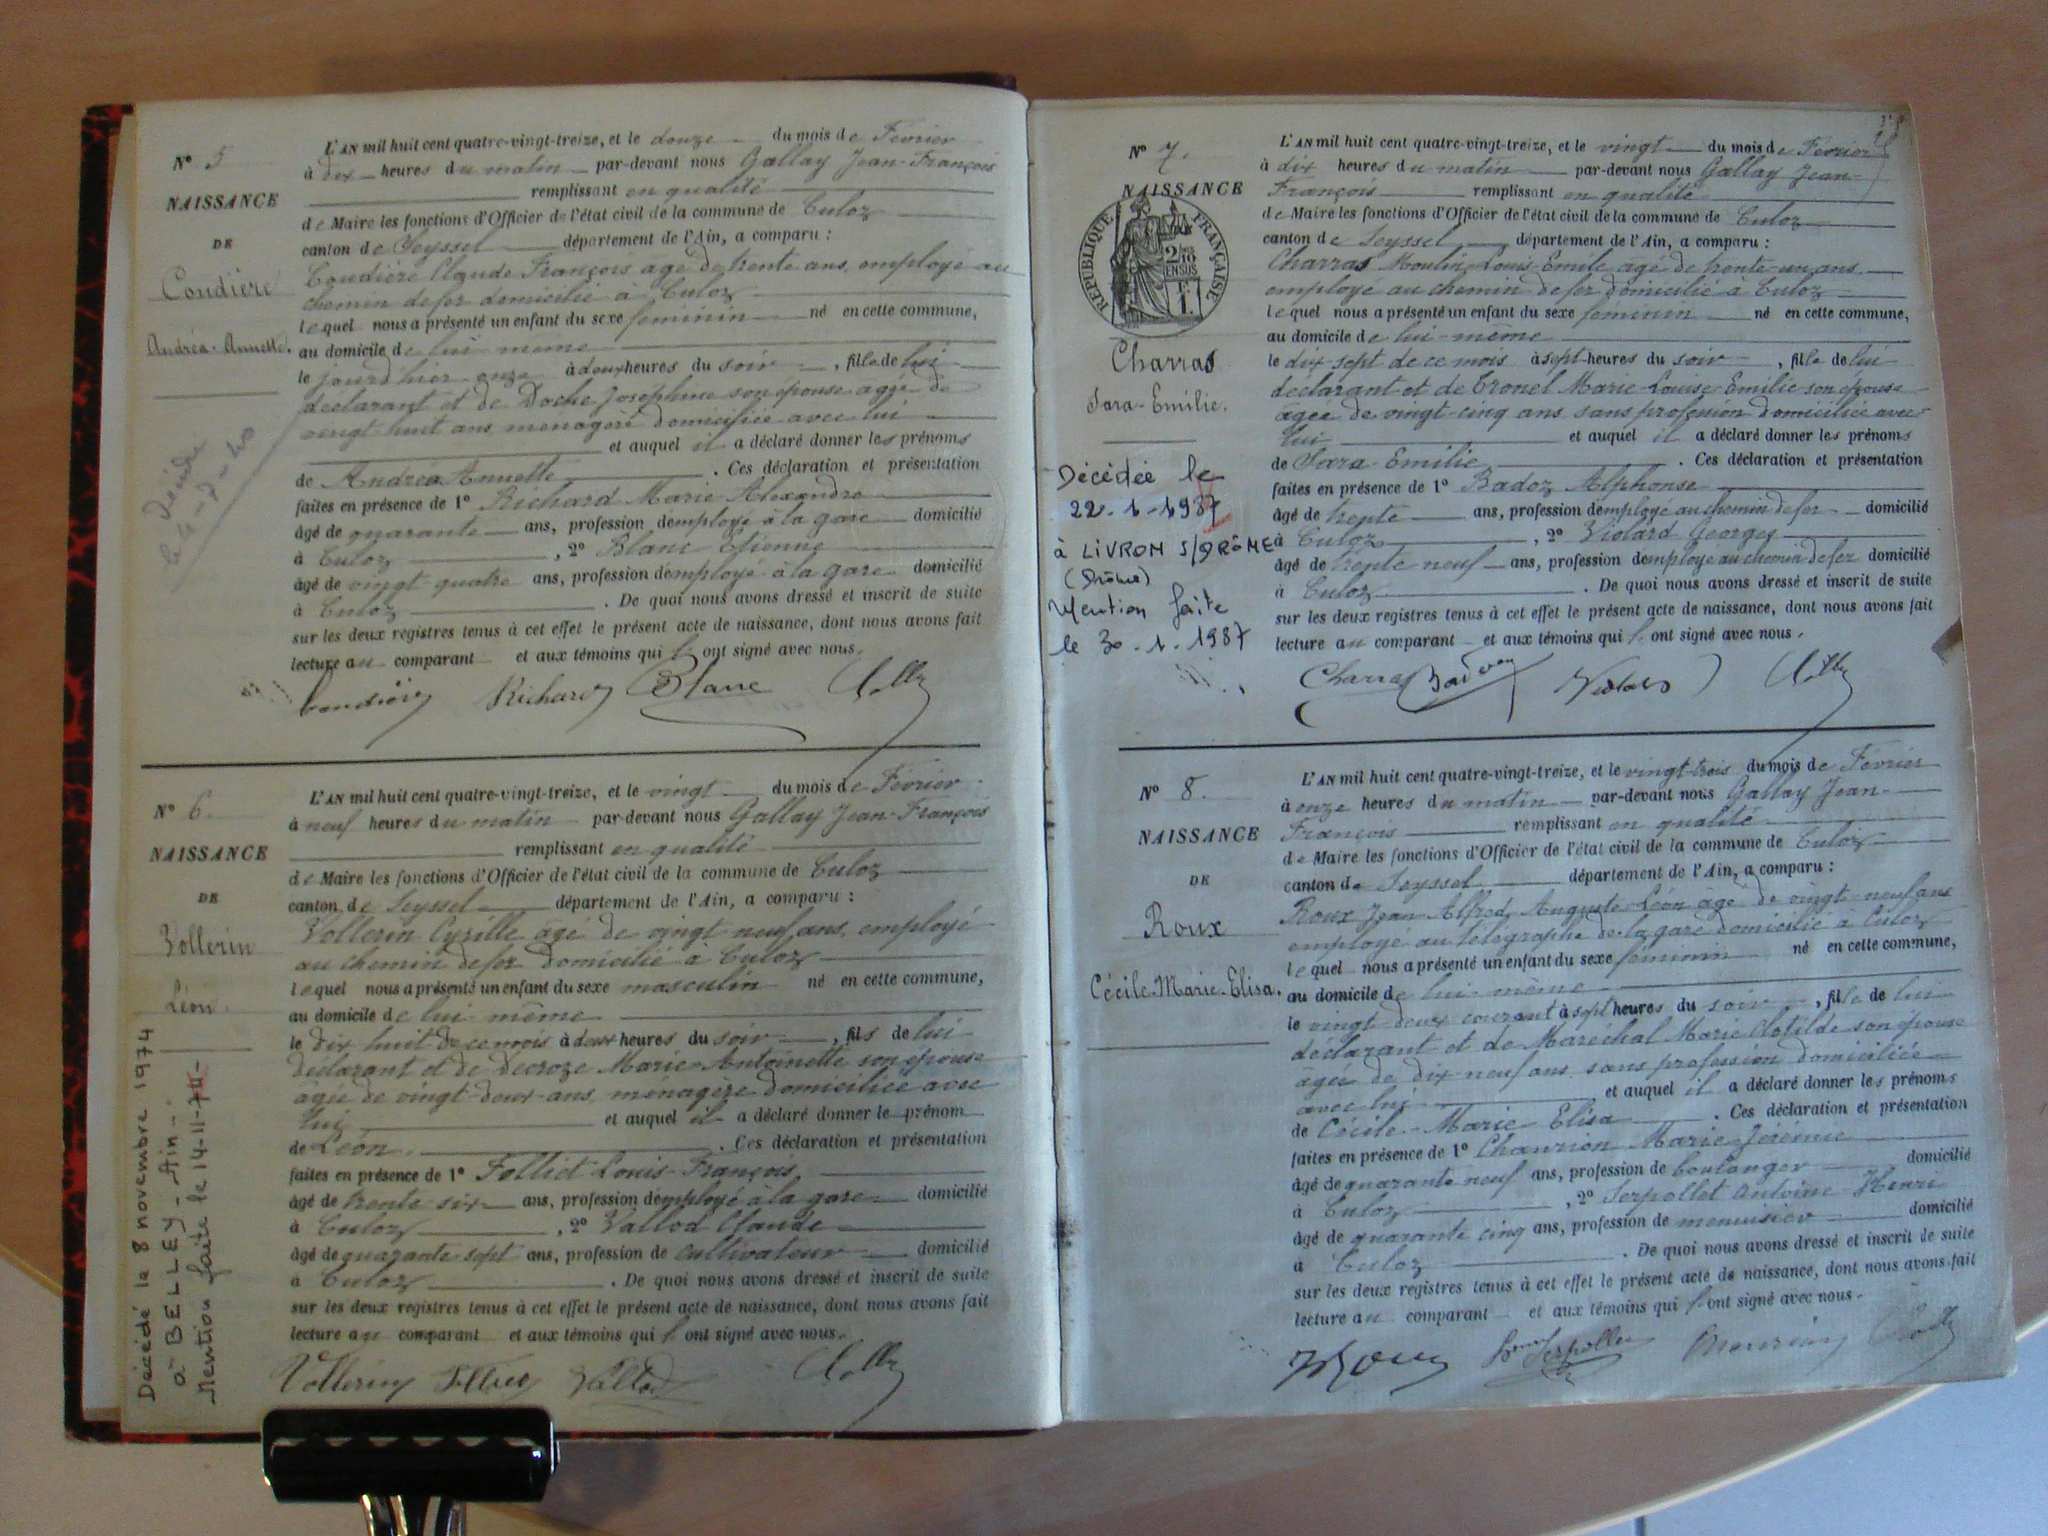 N° 5
NAISSANCE
DE
Coudière
Andréa-Annette.
Décédée
le 4-7-40
L'AN mil huit cent quatre-vingt-treize, et le douze du mois de Février
à dix heures du matin par-devant nous Gallay Jean-François
remplissant en qualité
de Maire les fonctions d'Officier de l'état civil de la commune de Culoz
canton de Seyssel département de l'Ain, a comparu :
Coudière Claude François âgé de trente ans, employé au
chemin de fer domicilié à Culoz
lequel nous a présenté un enfant du sexe féminin né en cette commune,
au domicile de lui-même
le jourd'hier onze à deux heures du soir, fille de lui
déclarant et de Doche Joséphine son épouse agée de
vingt huit ans ménagère domiciliée avec lui
et auquel il a déclaré donner les prénoms
de Andréa Annette. Ces déclaration et présentation
faites en présence de 1° Richard Marie Alexandre
âgé de quarante ans, profession d'employé à la gare domicilié
à Culoz, 2° Blanc Etienne
âgé de vingt quatre ans, profession d'employé à la gare domicilié
à Culoz. De quoi nous avons dressé et inscrit de suite
sur les deux registres tenus à cet effet le présent acte de naissance, dont nous avons fait
lecture au comparant et aux témoins qui l'ont signé avec nous.
Coudière Richard Blanc
N° 6.
NAISSANCE
DE
Vollerin
Léon.
Décédé le 8 novembre 1974
à BELLEY - Ain -
Mention faite le 14-11-74-
L'AN mil huit cent quatre-vingt-treize, et le vingt du mois de Février
à neuf heures du matin par-devant nous Gallay Jean-François
remplissant en qualité
de Maire les fonctions d'Officier de l'état civil de la commune de Culoz
canton de Seyssel département de l'Ain, a comparu :
Vollerin Cyrille âgé de vingt neuf ans, employé
au chemin de fer domicilié à Culoz
lequel nous a présenté un enfant du sexe masculin né en cette commune,
au domicile de lui-même
le dix huit de ce mois à deux heures du soir, fils de lui
déclarant et de Decroze Marie-Antoinette son épouse
âgée de vingt-deux ans ménagère domiciliée avec
lui et auquel il a déclaré donner le prénom
de Léon. Ces déclaration et présentation
faites en présence de 1° Folliet Louis François
âgé de trente six ans, profession d'employé à la gare domicilié
à Culoz, 2° Vallod Claude
âgé de quarante sept ans, profession de cultivateur domicilié
à Culoz. De quoi nous avons dressé et inscrit de suite
sur les deux registres tenus à cet effet le présent acte de naissance, dont nous avons fait
lecture au comparant et aux témoins qui l'ont signé avec nous.
Vollerin Folliet Vallod
N° 7.
NAISSANCE
RÉPUBLIQUE FRANÇAISE
2/10 EN SUS
1 F.
Charras
Sara-Emilie.
Décédée le
22-1-1987
à LIVRON S/DRÔME
(Drôme)
Mention faite
le 30-1-1987
L'AN mil huit cent quatre-vingt-treize, et le vingt du mois de Février
à dix heures du matin par-devant nous Gallay Jean-
François remplissant en qualité
de Maire les fonctions d'Officier de l'état civil de la commune de Culoz
canton de Seyssel département de l'Ain, a comparu :
Charras Moulin Louis-Emile âgé de trente-un ans
employé au chemin de fer domicilié à Culoz
lequel nous a présenté un enfant du sexe féminin né en cette commune,
au domicile de lui-même
le dix sept de ce mois à sept heures du soir, fille de lui
déclarant et de Tronel Marie-Louise-Emilie son épouse
âgée de vingt-cinq ans sans profession domiciliée avec
lui et auquel il a déclaré donner les prénoms
de Sara-Emilie. Ces déclaration et présentation
faites en présence de 1° Badoz Alphonse
âgé de trente ans, profession d'employé au chemin de fer domicilié
à Culoz, 2° Violard Georges
âgé de trente neuf ans, profession d'employé au chemin de fer domicilié
à Culoz. De quoi nous avons dressé et inscrit de suite
sur les deux registres tenus à cet effet le présent acte de naissance, dont nous avons fait
lecture au comparant et aux témoins qui l'ont signé avec nous.
Charras Badoz Violard
N° 8.
NAISSANCE
DE
Roux
Cécile-Marie-Elisa.
L'AN mil huit cent quatre-vingt-treize, et le vingt-trois du mois de Février
à onze heures du matin par-devant nous Gallay Jean-
François remplissant en qualité
de Maire les fonctions d'Officier de l'état civil de la commune de Culoz
canton de Seyssel département de l'Ain, a comparu :
Roux Jean Alfred, Auguste Léon âgé de vingt-neuf ans
employé au télégraphe de la gare domicilié à Culoz
lequel nous a présenté un enfant du sexe féminin né en cette commune,
au domicile de lui-même
le vingt deux courant à sept heures du soir, fille de lui
déclarant et de Maréchal Marie Clotilde son épouse
âgée de dix-neuf ans, sans profession domiciliée
avec lui et auquel il a déclaré donner les prénoms
de Cécile-Marie Elisa. Ces déclaration et présentation
faites en présence de 1° Chaurion Marie-Jérémie
âgé de quarante neuf ans, profession de boulanger domicilié
à Culoz, 2° Serpollet Antoine-Henri
âgé de quarante cinq ans, profession de menuisier domicilié
à Culoz. De quoi nous avons dressé et inscrit de suite
sur les deux registres tenus à cet effet le présent acte de naissance, dont nous avons fait
lecture au comparant et aux témoins qui l'ont signé avec nous.
Roux Serpollet